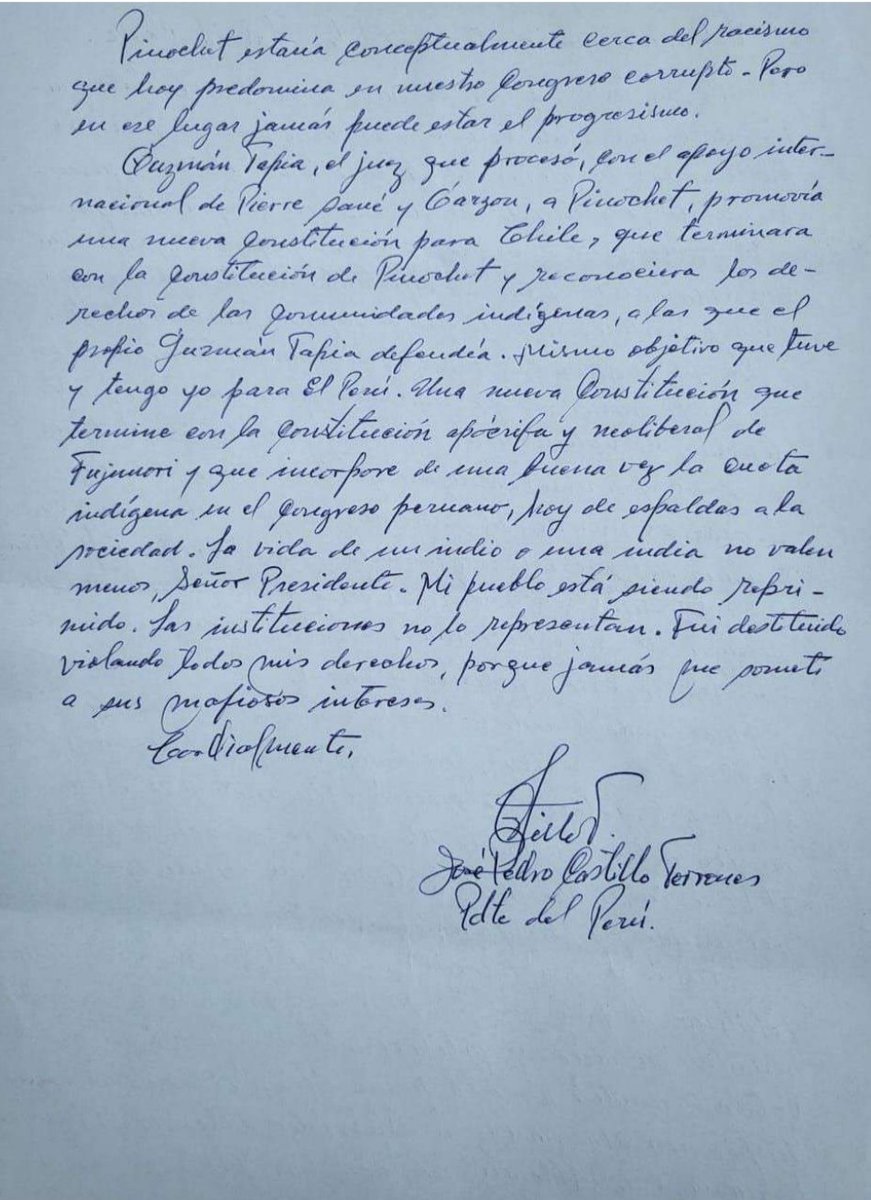 Pinochet estaría conceptualmente cerca del racismo
que hoy predomina en nuestro Congreso corrupto. Pero
en ese lugar jamás puede estar el progresismo.
Guzmán Tapia, el juez que procesó, con el apoyo inter-
nacional de Pierre Sané y Garzon, a Pinochet, promovía
una nueva Constitución para Chile, que terminara
con la Constitución de Pinochet y reconociera los de-
rechos de las Comunidades indígenas, a las que el
propio Guzmán Tapia defendía. Mismo objetivo que tuve
y tengo yo para El Perú. Una nueva Constitución que
termine con la Constitución apócrifa y neoliberal de
Fujimori y que incorpore de una buena vez la cuota
indígena en el Congreso peruano, hoy de espaldas a la
sociedad. La vida de un indio o una india no valen
menos, Señor Presidente. Mi pueblo está siendo repri-
mido. Las instituciones no lo representan. Fui destituido
violando todos mis derechos, porque jamás me someti
a sus mafiosos intereses.
Cordialmente,
José Pedro Castillo Terrones
Pdte del Perú.